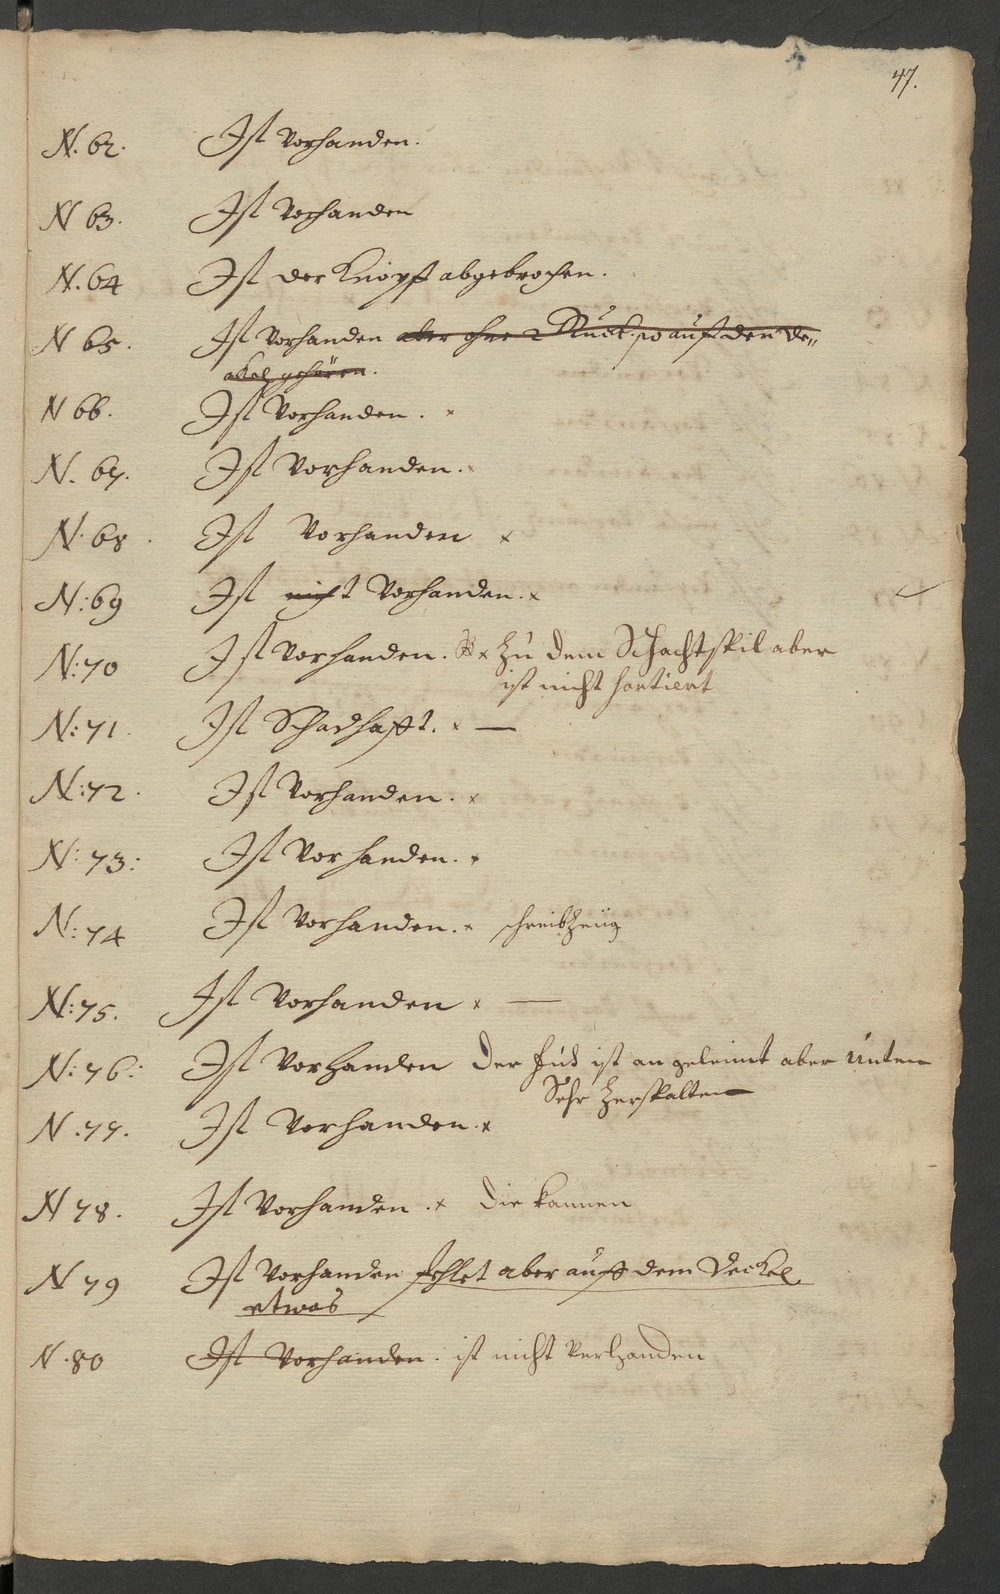 47.
N. 62. Ist Vorhanden.
N 63. Ist Vorhanden
N. 64 Ist der Knöpff abgebrochen.
N 65. Ist Vorhanden aber ohne 2 Stuck so auff den De„
ckel gehören.
N 66. Ist Vorhanden. x
N. 67. Ist Vorhanden. x
N. 68. Ist Vorhanden x
N: 69 Ist nicht Vorhanden. x
N: 70 Ist Vorhanden. x Zu dem Schachtspil aber
ist nicht sortiert
N: 71. Ist Schadhafft. x —
N: 72. Ist Vorhanden. x
N: 73: Ist Vorhanden. x
N: 74 Ist Vorhanden. x schreibZeüg
N: 75. Ist Vorhanden x —
N: 76: Ist Vorhanden der fuß ist an geleimt aber unten
Sehr Zerspalten
N. 77. Ist Vorhanden. x
N 78. Ist Vorhanden. x die kannen
N 79 Ist Vorhanden fehlet aber auff dem Deckel
etwas
N. 80 Ist Vorhanden. ist nicht Verhanden